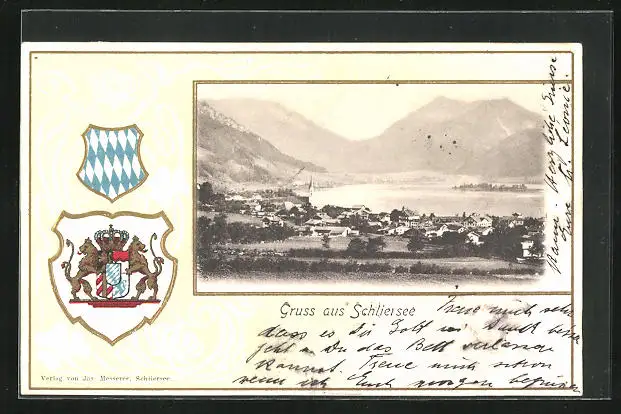 Gruss aus Schliersee
Freue mich sehr
dass es Dir Gott sei Dank besser
geht u. Du das Bett verlassen
kannst. Freue mich schon
wenn ich Euch morgen
Herzliche Grüsse
Leonie
Verlag von Jax. Messerer, Schliersee